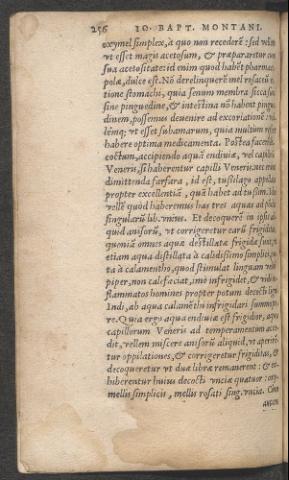 256 IO. BAPT. MONTANI.
oxymel simplex, à quo non recederē: sed vellem
vt esset magis acetosum, & præpararetur cum
sua acetositate: id enim quod habēt pharmaco
polæ, dulce est. Nō derelinquerē mel rosatū
tione stomachi, quia senum membra sicca sunt
sine pinguedine, & intestina nō habent pingue
dinem, possemus deuenire ad excorationē:
dēmq; vt esset subamarum, quia multùm
habere optima medicamenta. Postea facerē
coctum, accipiendo aquā endiuiæ, vel capilli
Veneris, si haberentur capilli Veneris: nec
dimittenda farfara, id est, tussilago appellata
propter excellentiā, quā habet ad tussim.
vellē quòd haberemus has tres aquas ad
singularū lib. vnius. Et decoquerē in ipsis
quid anisorū, vt corrigeretur earū frigiditas
quoniā omnes aquæ destillatæ frigidæ sunt,
etiam aqua distillata à calidissimo simplici,
ta à calamentho, quod stimulat linguam velut
piper, non calefaciat, imò infrigidet, &
flammatos homines propter potum decocti
Indi, ab aqua calamēthi infrigidari
re. Quia ergo aqua endiuiæ est frigidior, aqua
capillorum Veneris ad temperamentum acce
dit, vellem miscere anisorū aliquid, vt aperiren
tur oppilationes, & corrigeretur frigiditas, &
decoqueretur vt duæ libræ remanerent: & ex
hiberentur huius decocti vnciæ quatuor: oxy-
mellis simplicis, mellis rosati sing. vncia. Cùm
autem